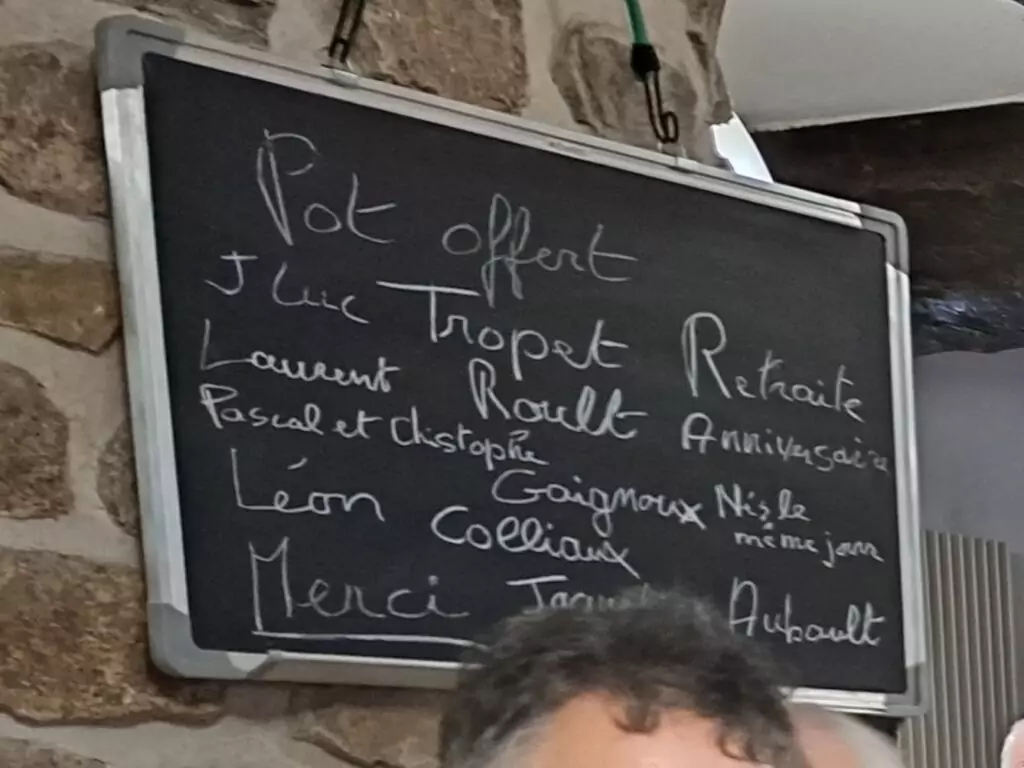 Pot offert
J Luc Tropet Retraite
Laurent Roult Anniversaire
Pascal et Christophe Gaignoux Nis le
même jour
Léon Colliaux
Merci Aubault